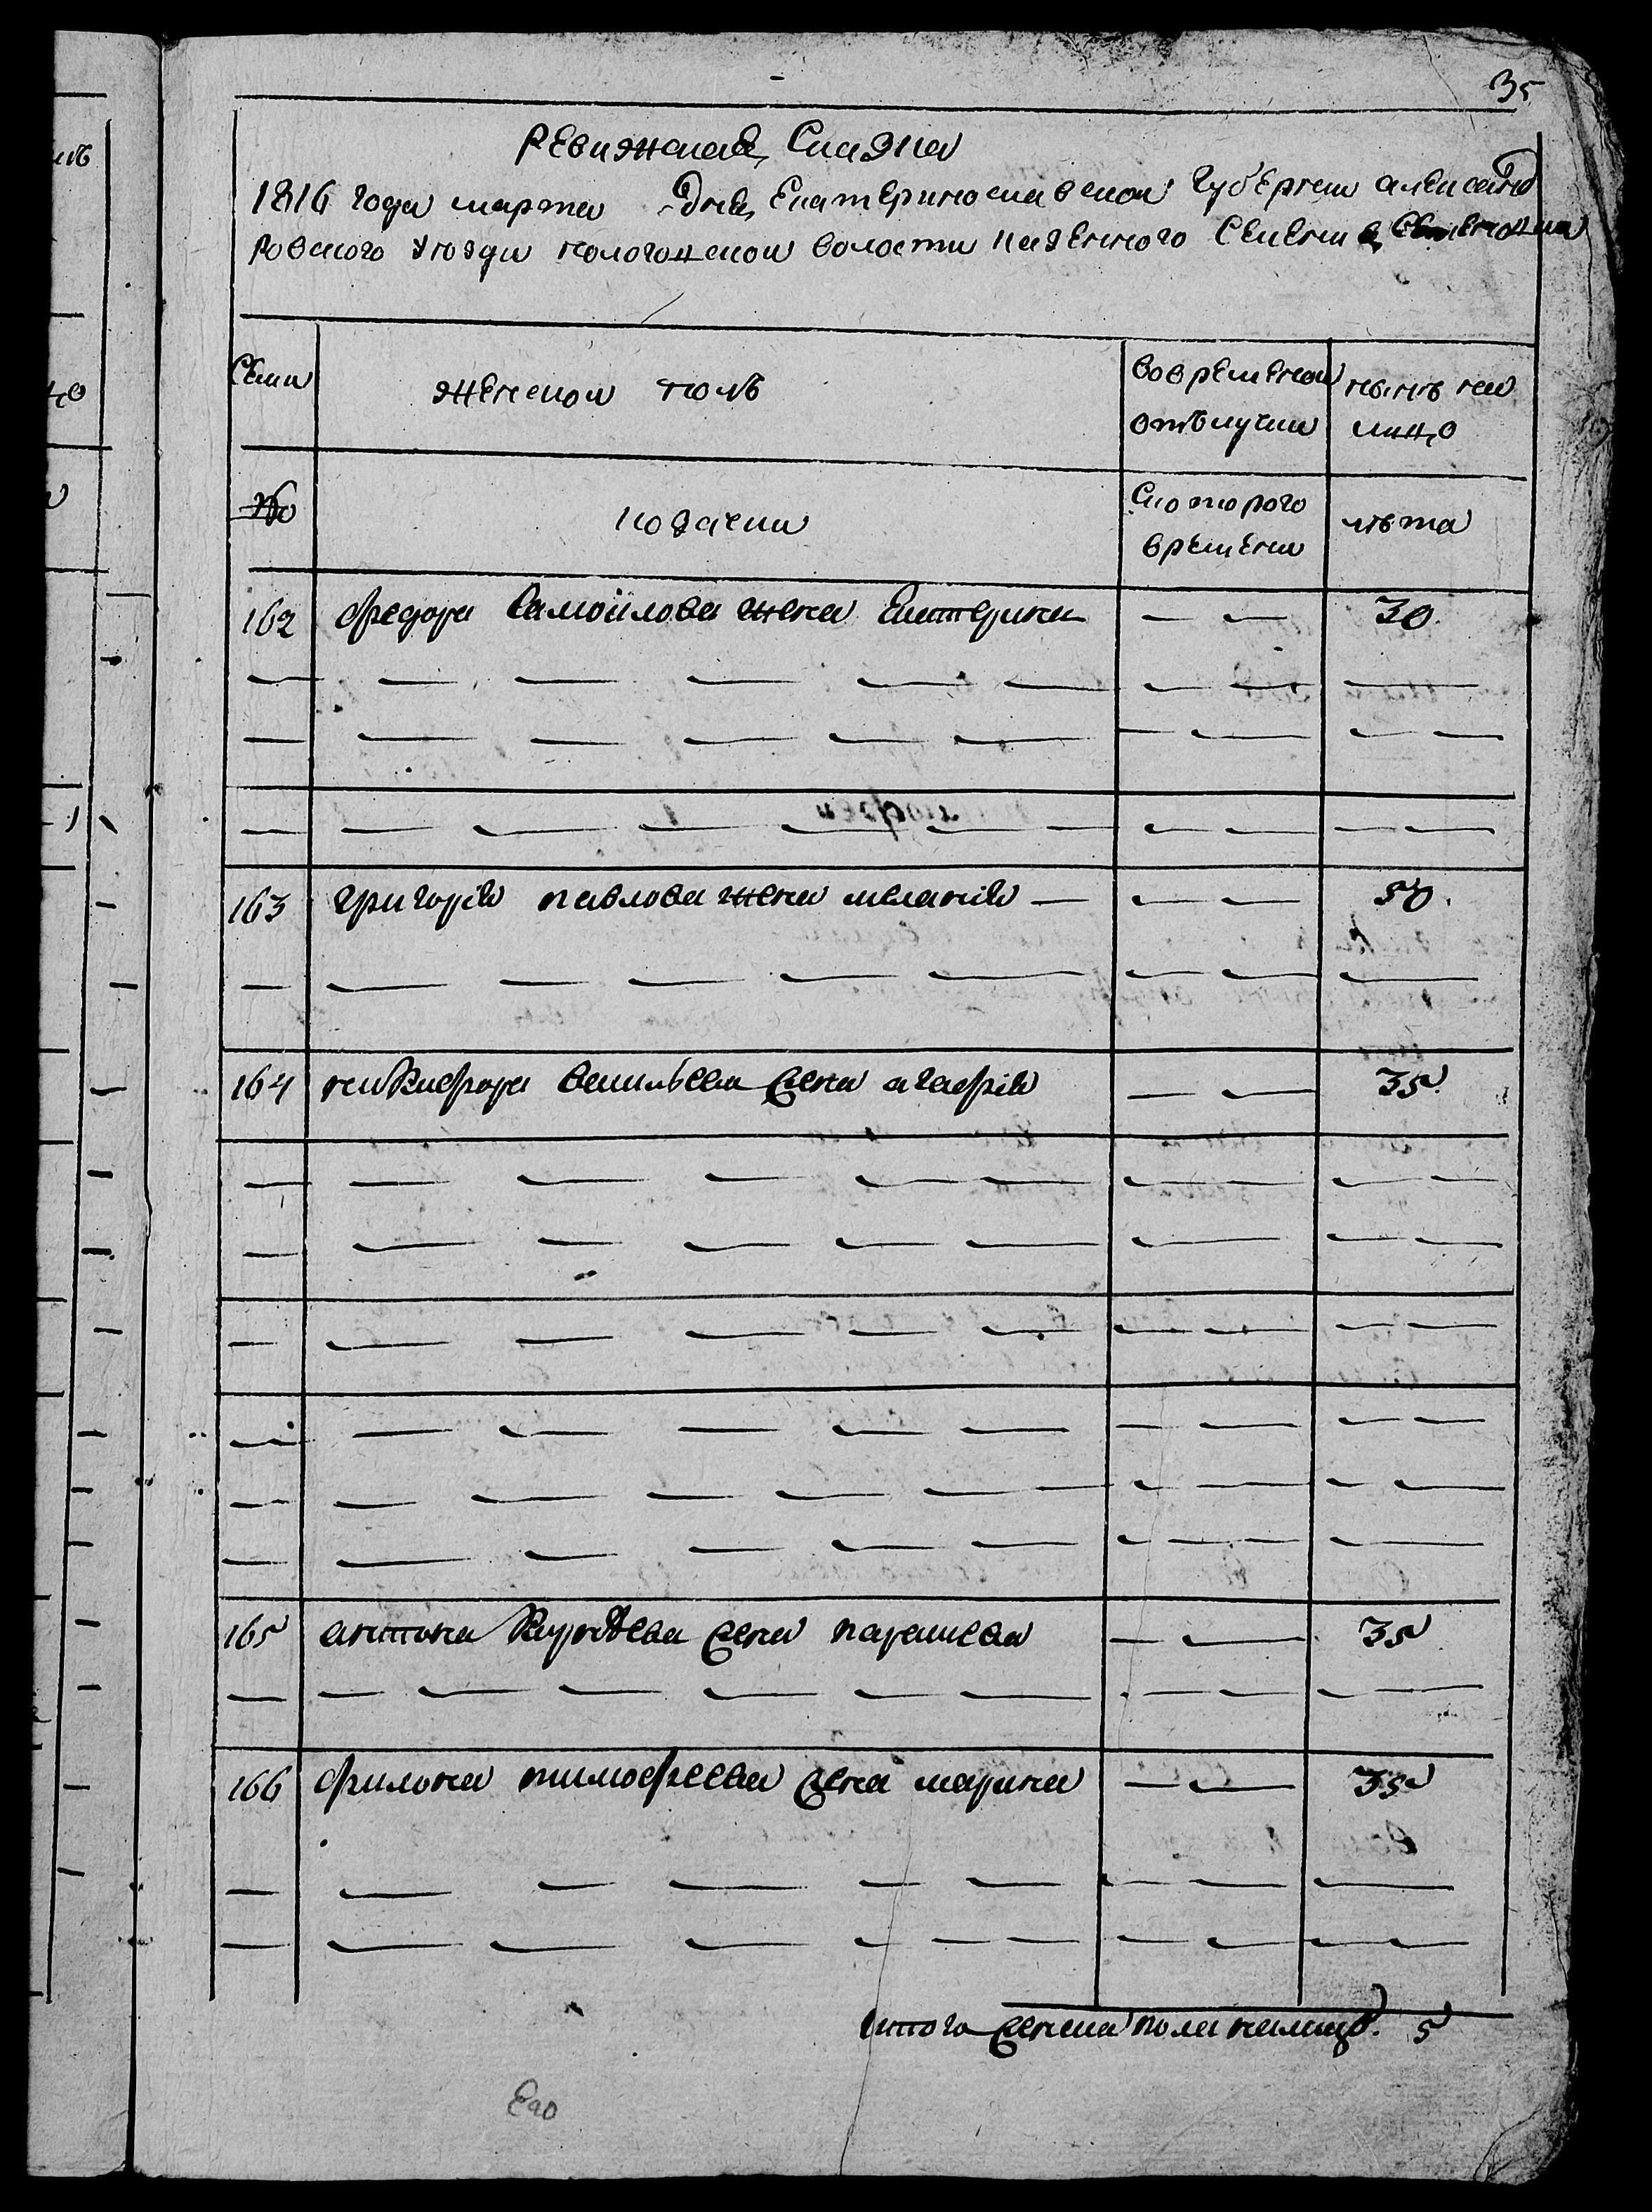 35
Ревижская Сказка
1816 года марта дня Екатеринославской губернии александ
ровского уезда пологоцкой волости казенного Селения
Семи
женской полъ
вовременой
отълучки
нынѣ на
лицо
№
казачки
Скоторого
времени
лѣта
162 федора Самойлова жена Екатерина — — 30.
163 григорія павлова жена меланія — — — 50.
164 никифора васильева жена агафія — — 35
165 антона жена параскева — — 35
166 филона тимофеева жена марина — — 35
итого женска пола налицо. 5